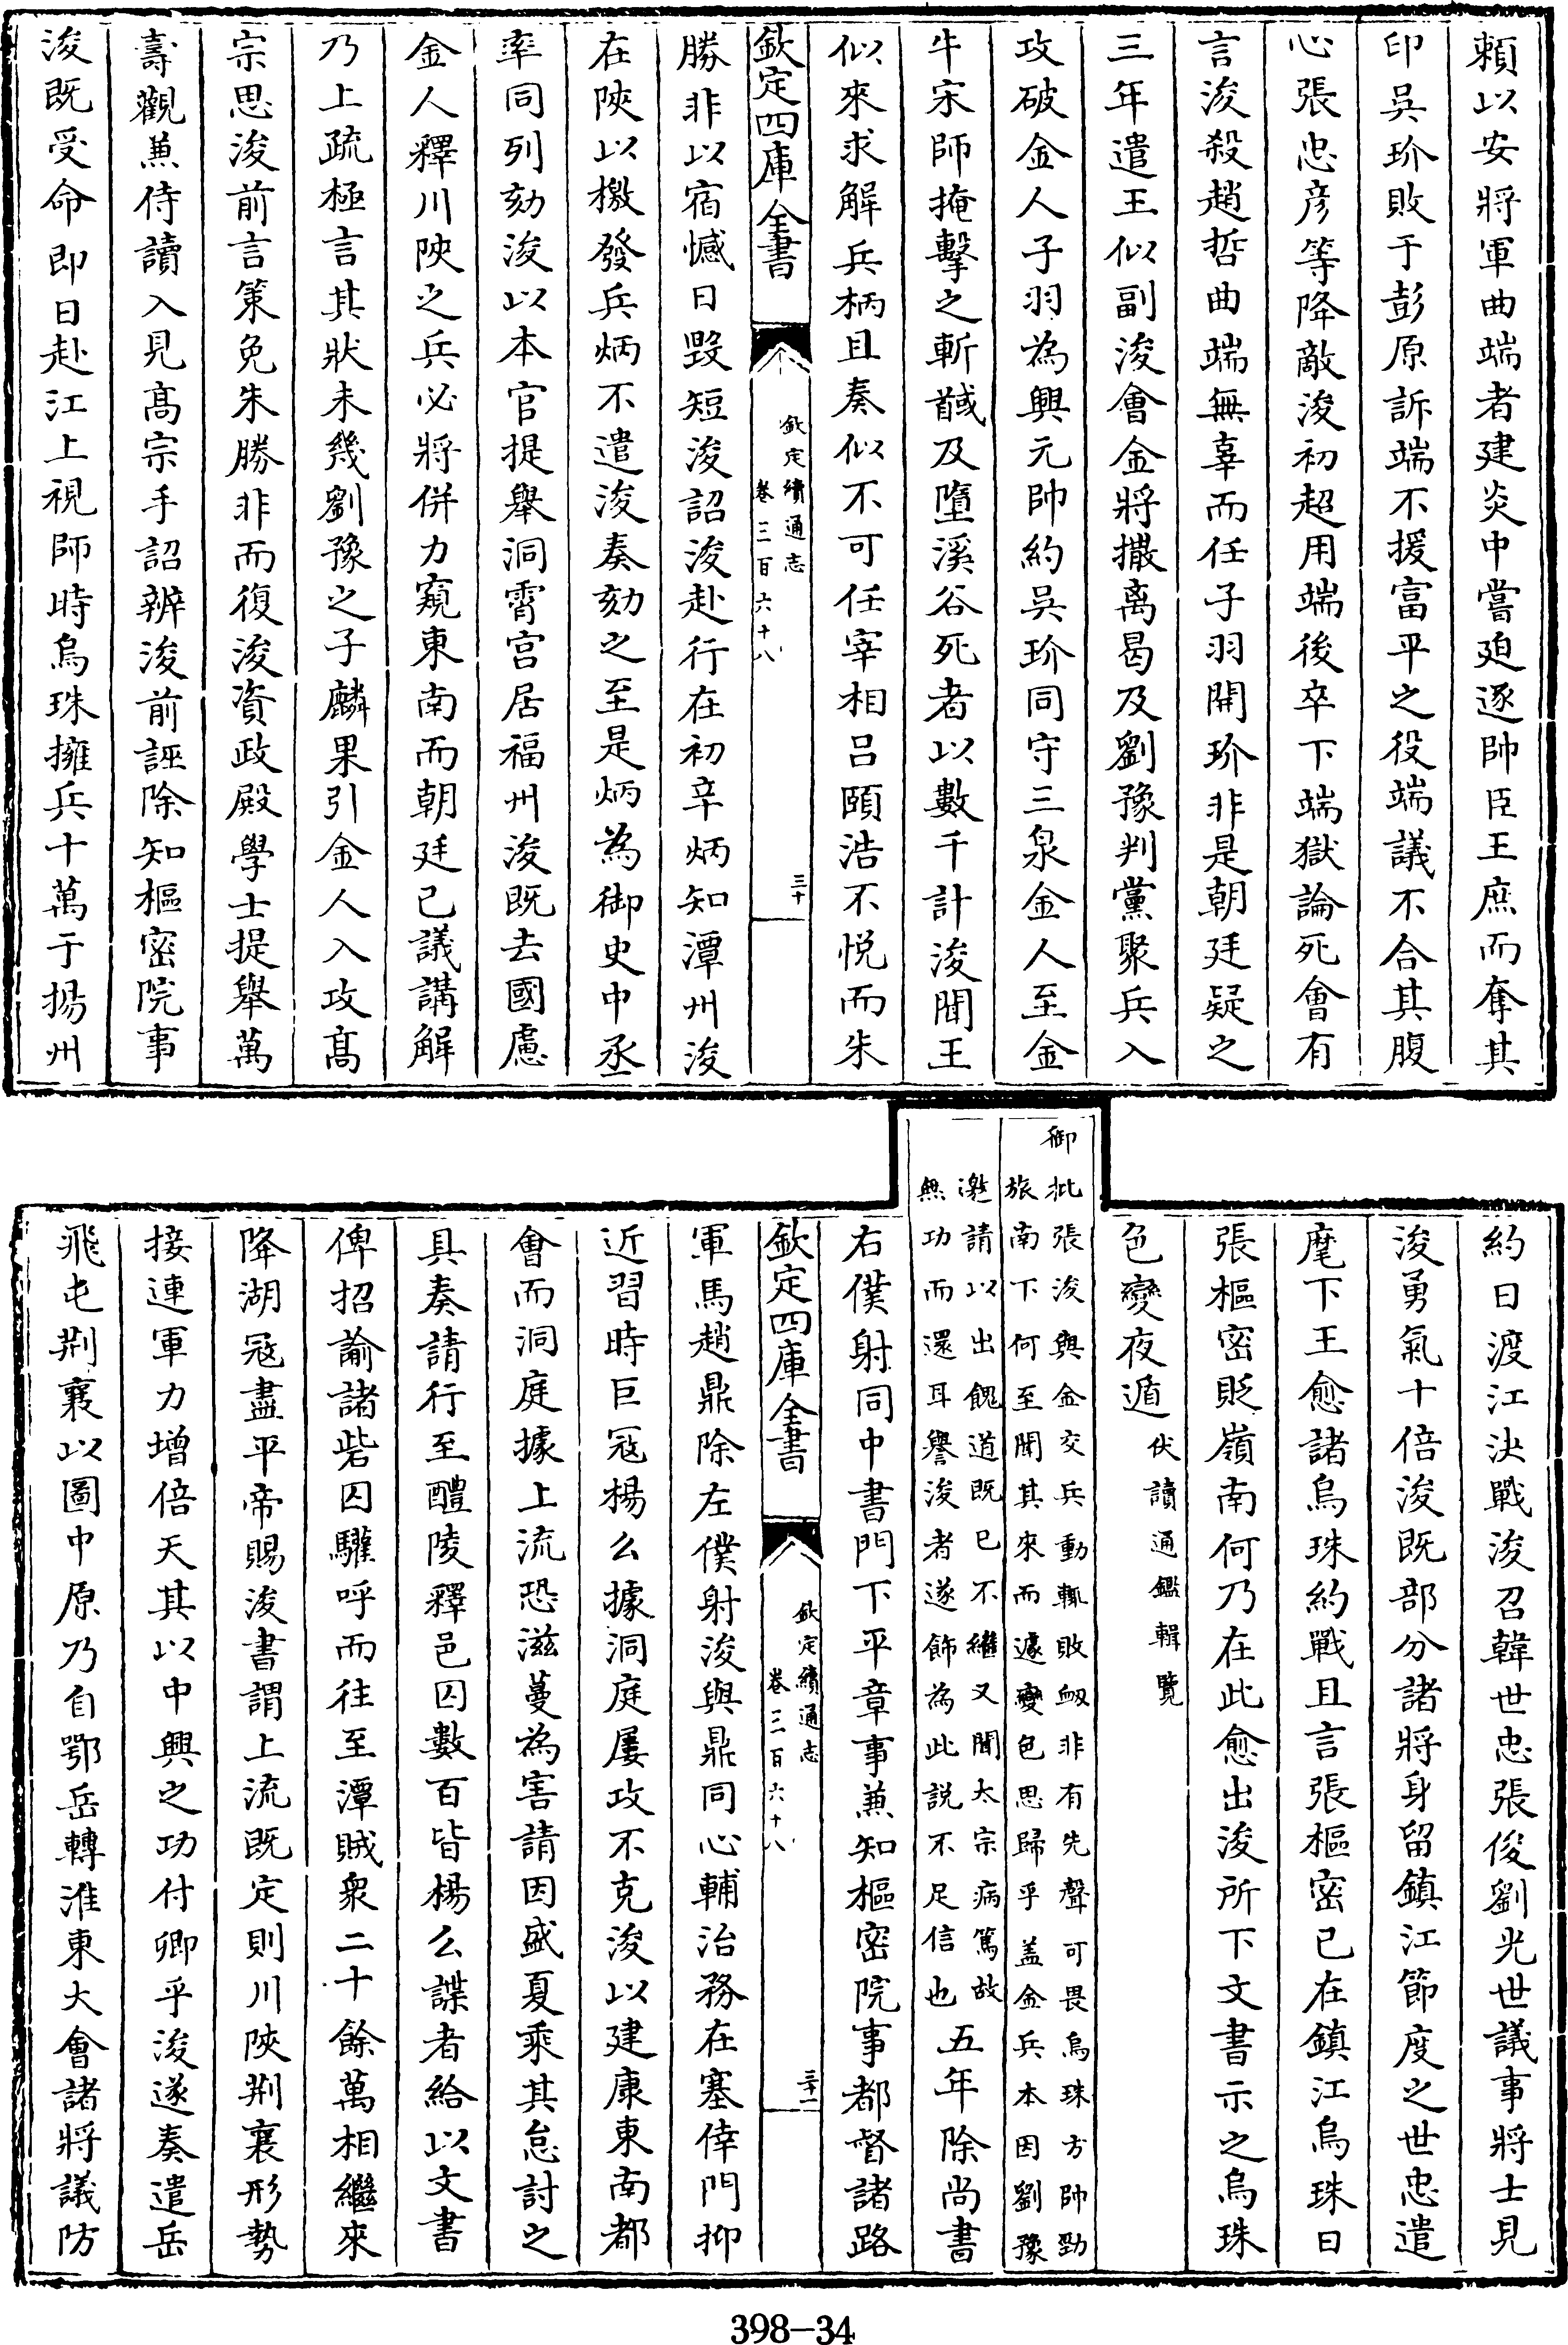 賴以安將軍曲端者建炎中嘗廹逐帥臣王庶而奪其
印吳玠敗于彭原訴端不援富平之役端議不合其腹
心張忠彦等降敵浚初超用端後卒下端獄論死會有
言浚殺趙哲曲端無辜而任子羽開玠非是朝廷疑之
三年遣王似副浚會金將撒离曷及劉豫判黨聚兵入
攻破金人子羽為興元帥約吳玠同守三泉金人至金
牛宋師掩擊之斬馘及墮溪谷死者以數千計浚聞王
似來求解兵柄且奏似不可任宰相吕頤浩不悦而朱
欽定四庫全書
欽定續通志
卷三百六十八
三十
勝非以宿憾日毀短浚詔浚赴行在初辛炳知潭州浚
在陜以檄發兵炳不遣浚奏劾之至是炳為御史中丞
率同列劾浚以本官提舉洞霄宫居福州浚既去國慮
金人釋川陜之兵必將併力窺東南而朝廷已議講解
乃上疏極言其狀未幾劉豫之子麟果引金人入攻髙
宗思浚前言策免朱勝非而復浚資政殿學士提舉萬
壽觀兼侍讀入見髙宗手詔辨浚前誣除知樞密院事
浚既受命即日赴江上視師時烏珠擁兵十萬于揚州
約日渡江決戰浚召韓世忠張俊劉光世議事將士見
浚勇氣十倍浚既部分諸將身留鎮江節度之世忠遣
麾下王愈詣烏珠約戰且言張樞密已在鎮江烏珠曰
張樞密貶嶺南何乃在此愈出浚所下文書示之烏珠
色變夜遁伏讀通鑑輯覽
御批張浚與金交兵動輒敗衂非有先聲可畏烏珠方帥勁
旅南下何至聞其來而遽變色思歸乎盖金兵本因劉豫
邀請以出餽道既已不繼又聞太宗病篤故
無功而還耳譽浚者遂飾為此説不足信也五年除尚書
右僕射同中書門下平章事兼知樞密院事都督諸路
欽定四庫全書
欽定續通志
卷三百六十八
三十一
軍馬趙鼎除左僕射浚與鼎同心輔治務在塞倖門抑
近習時巨冦楊么據洞庭屢攻不克浚以建康東南都
會而洞庭據上流恐滋蔓為害請因盛夏乘其怠討之
具奏請行至醴陵釋邑囚數百皆楊么諜者給以文書
俾招諭諸砦囚驩呼而往至潭賊衆二十餘萬相繼來
降湖冦盡平帝賜浚書謂上流既定則川陜荆襄形勢
接連軍力增倍天其以中興之功付卿乎浚遂奏遣岳
飛屯荆襄以圖中原乃自鄂岳轉淮東大會諸將議防
398-34